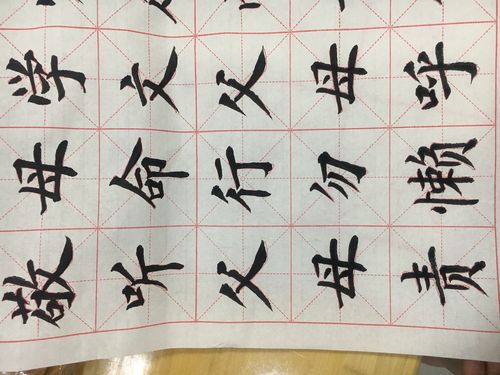 学文父母呼
母命行勿懒
敬听父母责